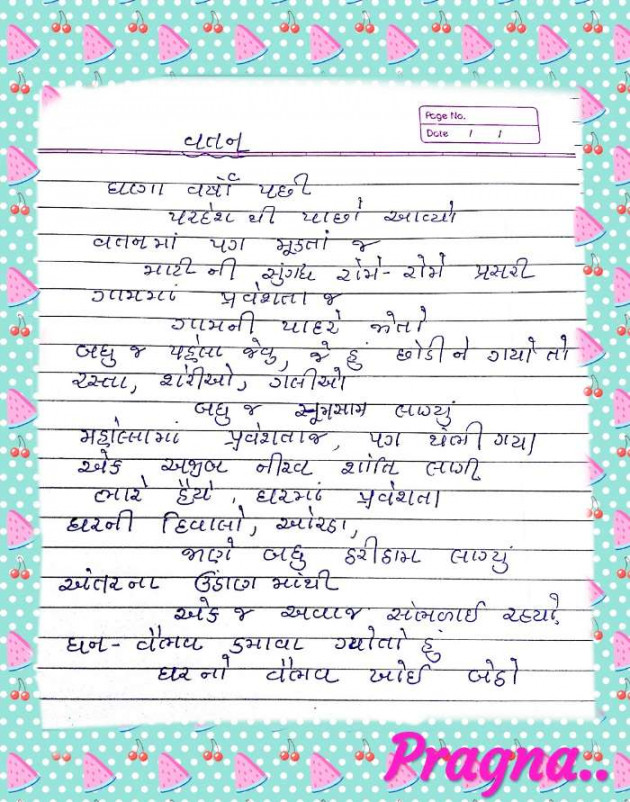 Page No.
Date / /
વતન
ઘણા વર્ષો પછી
પરદેશ થી પાછો આવ્યો
વતનમાં પગ મૂકતાં જ
માટી ની સુંગધ રોમે-રોમે પ્રસરી
ગામમાં પ્રવેશતા જ
ગામની પાદરે જોતો
બધુ જ પહેલા જેવુ, જે હું છોડીને ગયો તો
રસ્તા, શેરીઓ, ગલીઓ
બધુ જ સૂમસામ લાગ્યું
મહોલ્લામાં પ્રવેશતાજ, પગ થંભી ગયા
એક અજીબ નીરવ શાંતિ લાગી
ભારે હૈયે, ઘરમાં પ્રવેશતા
ઘરની દિવાલો, ઓરડા,
જાણે બધુ ઠરીઠામ લાગ્યું
અંતરના ઉંડાણ માંથી
એક જ અવાજ સંભળાઈ રહ્યો
ધન-વૈભવ કમાવા ગ્યોતો હું
ઘરનો વૈભવ ખોઈ બેઠો
Pragna..